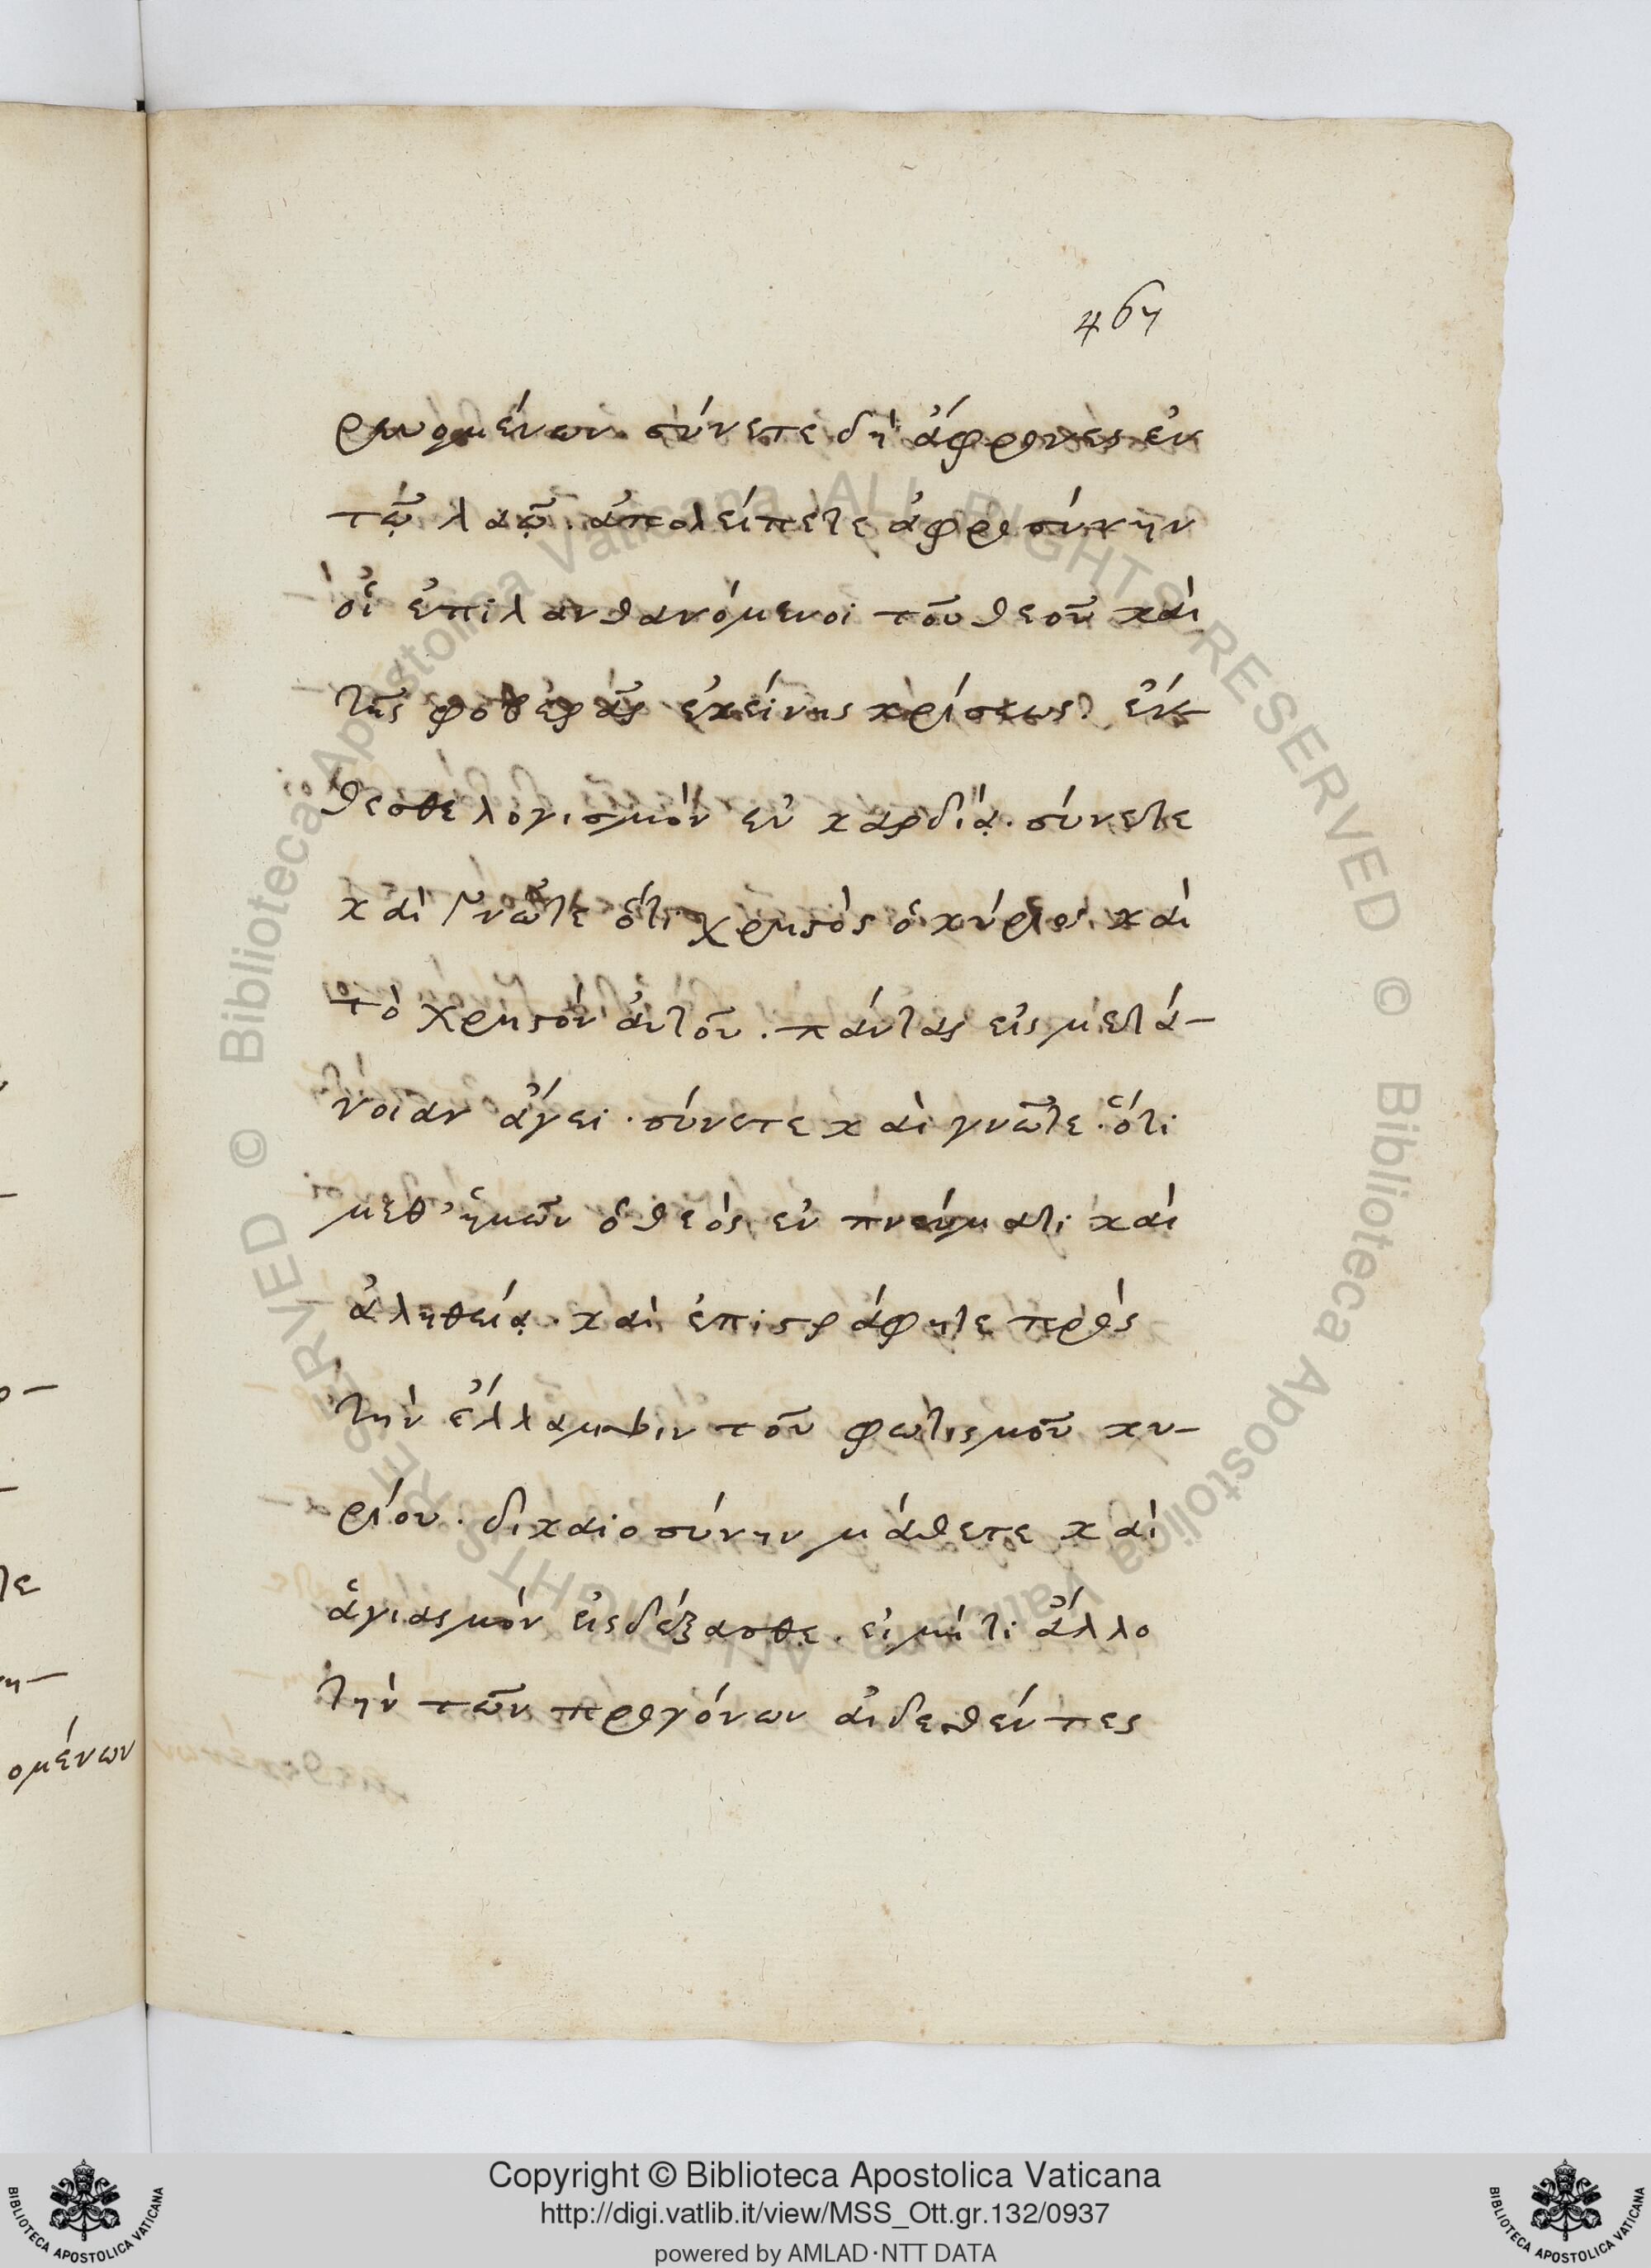 467
ρημομένων. σύνετε δὴ ἄφρονες ἐν
τῷ λαῷ. ἀπολείπετε ἀφροσύνην
οἱ ἐπιλανθανόμενοι τοῦ θεοῦ καὶ
τῆς φοβερᾶς ἐκείνης κρίσεως. ἔν-
θεσθε λογισμὸν ἐν καρδίᾳ. σύνετε
καὶ γνῶτε ὅτι χρηστὸς ὁ κύριος. καὶ
τὸ χρηστὸν αὐτοῦ. πάντας εἰς μετά-
νοιαν ἄγει. σύνετε καὶ γνῶτε. ὅτι
μεθ' ἡμῶν ὁ θεὸς ἐν πνεύματι καὶ
ἀληθείᾳ. καὶ ἐπιστράφητε πρὸς
τὴν ἔλλαμψιν τοῦ φωτισμοῦ κυ-
ρίου. δικαιοσύνην μάθετε καὶ
ἁγιασμὸν εἰσδέξασθε. εἰ μή τι ἄλλο
τὴν τῶν προγόνων αἰδεθέντες
ομένων
Copyright © Biblioteca Apostolica Vaticana
http://digi.vatlib.it/view/MSS_Ott.gr.132/0937
powered by AMLAD·NTT DATA
BIBLIOTECA APOSTOLICA VATICANA
BIBLIOTECA APOSTOLICA VATICANA
© Biblioteca Apostolica Vaticana ALL RIGHTS RESERVED
© Biblioteca Apostolica Vaticana ALL RIGHTS RESERVED